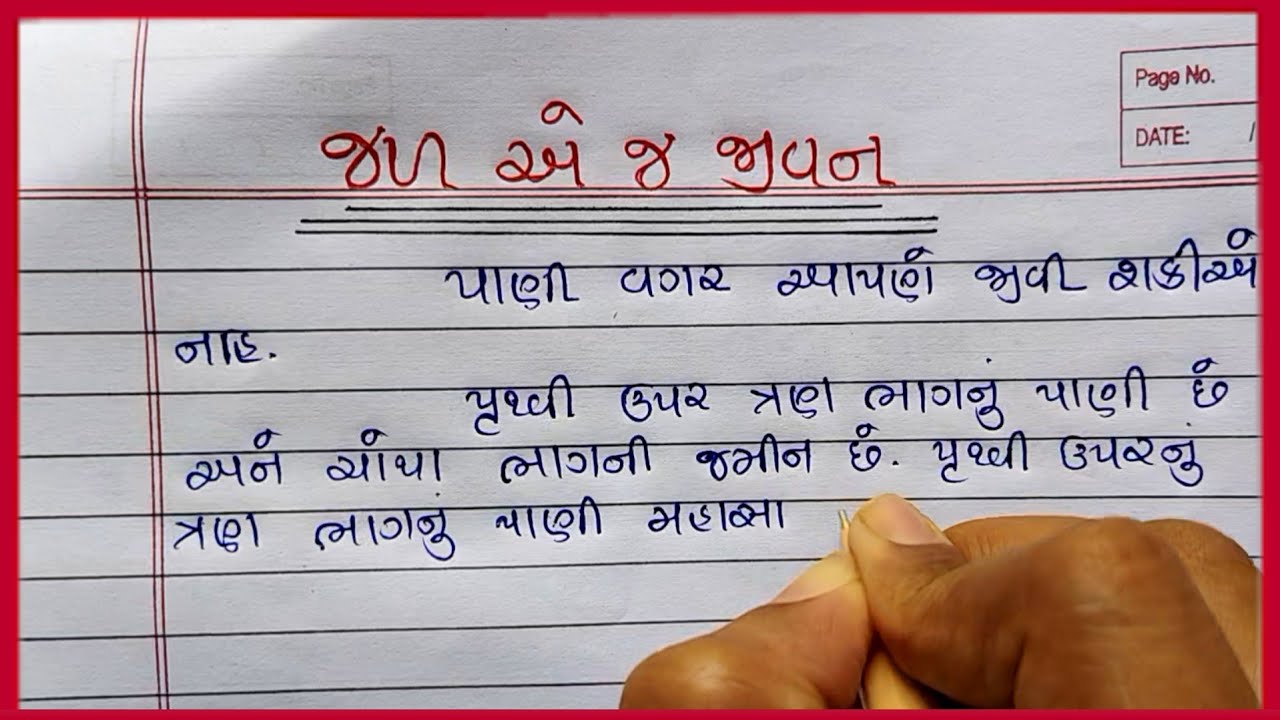 Page No.
DATE: /
જળ એ જ જીવન
પાણી વગર આપણે જીવી શકીએ
નહિ.
પૃથ્વી ઉપર ત્રણ ભાગનું પાણી છે
અને ચોથા ભાગની જમીન છે. પૃથ્વી ઉપરનું
ત્રણ ભાગનું પાણી મહાસા